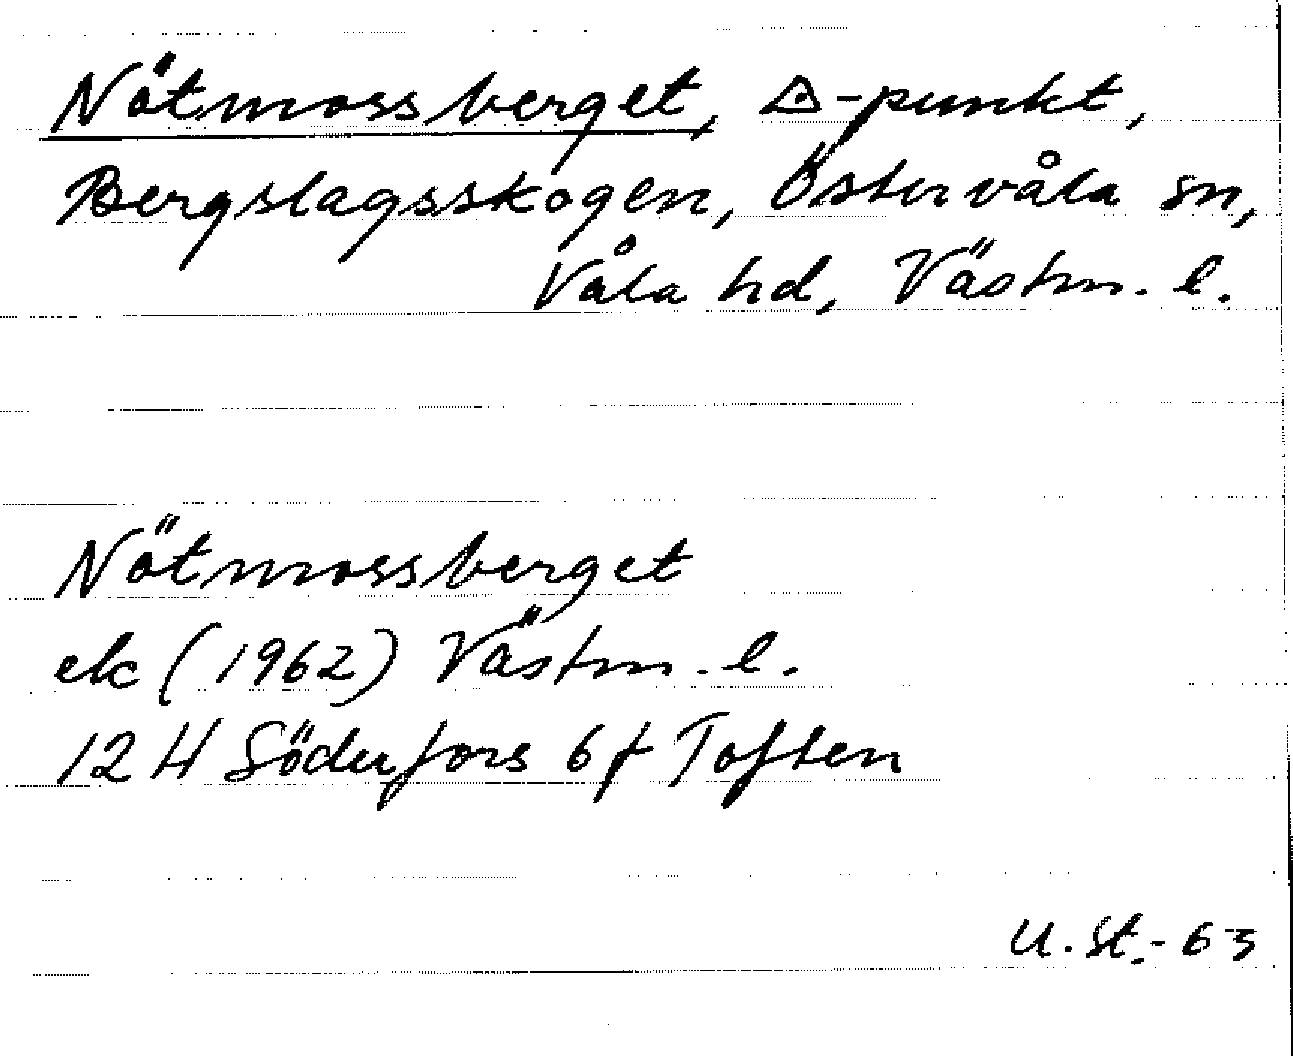 Nötmossberget, △-punkt,
Bergslagsskogen, Östervåla sn,
Våla hd, Västm. l.
Nötmossberget
ek (1962) Västm. l.
12 H Söderfors 6f Toften
U. St. - 63